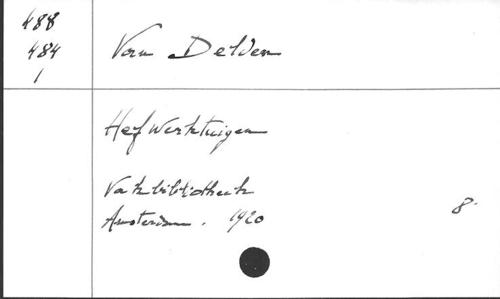 488
484
1
Van Delden
Hefwerktuigen
Vakbibliotheek
Amsterdam. 1920
8°